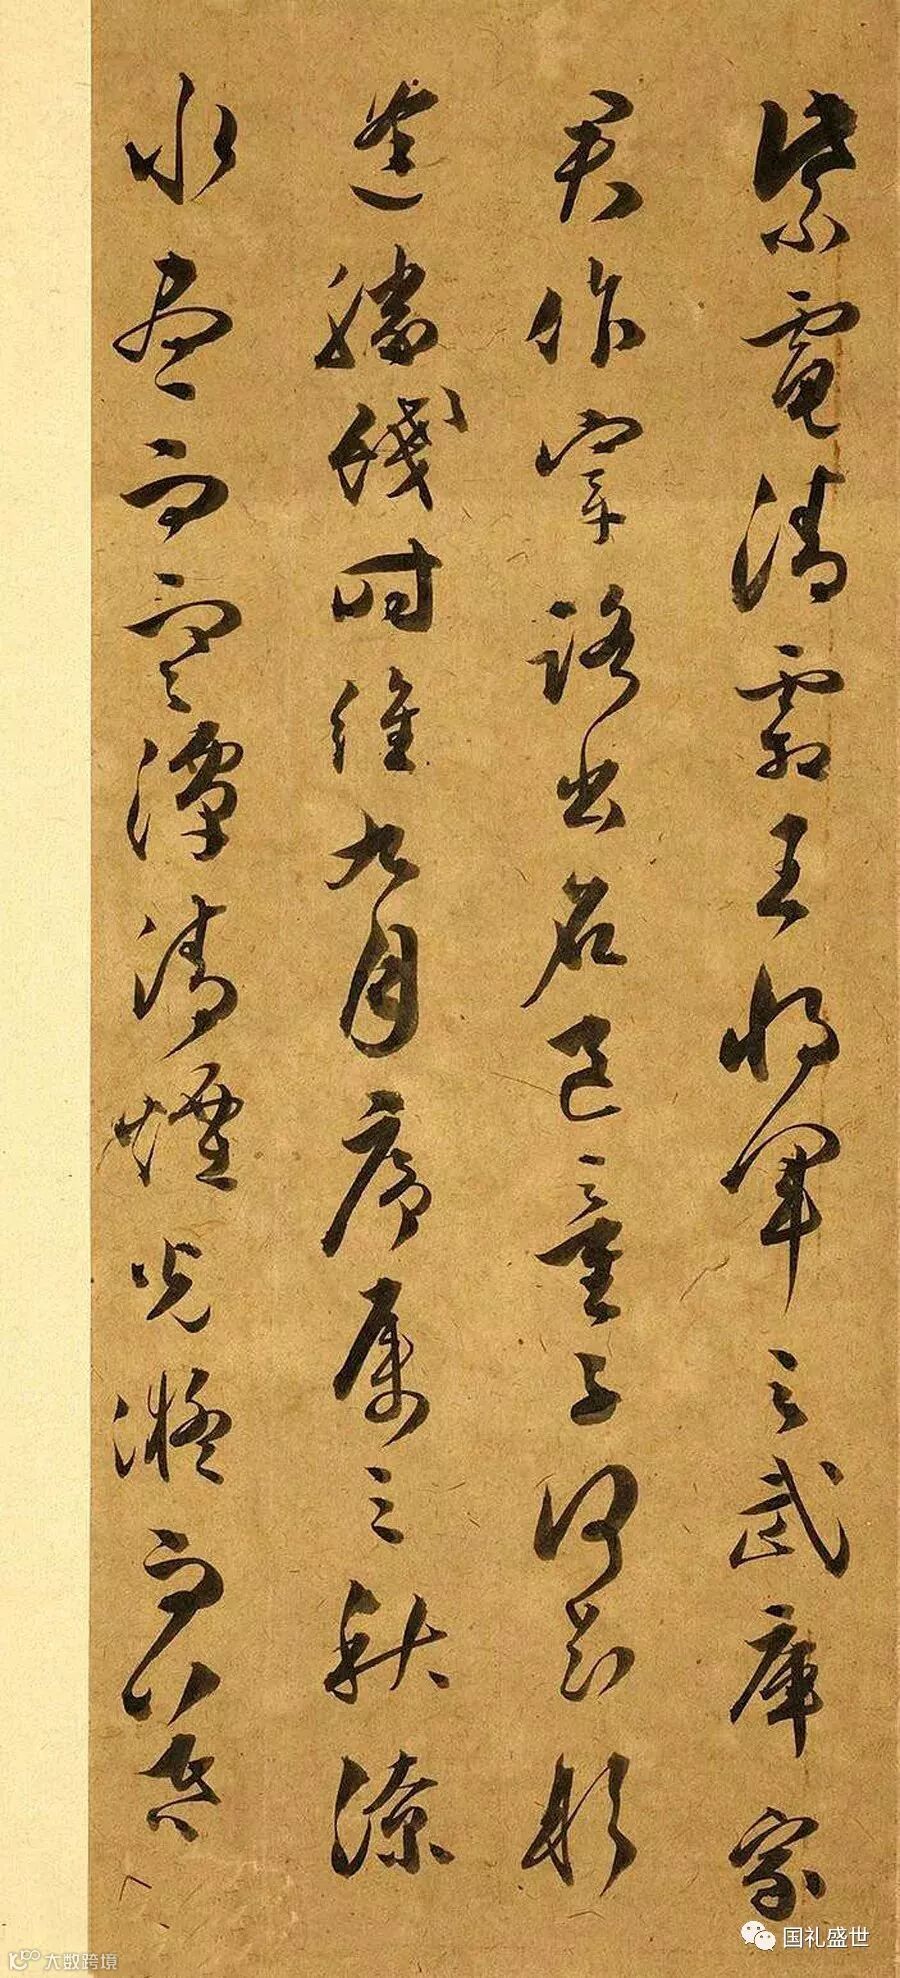 紫電清霜王將軍之武庫家
君作宰路出名區童子何知躬
逢勝餞時維九月序屬三秋潦
水盡而寒潭清煙光凝而暮
国礼盛世
大数跨境